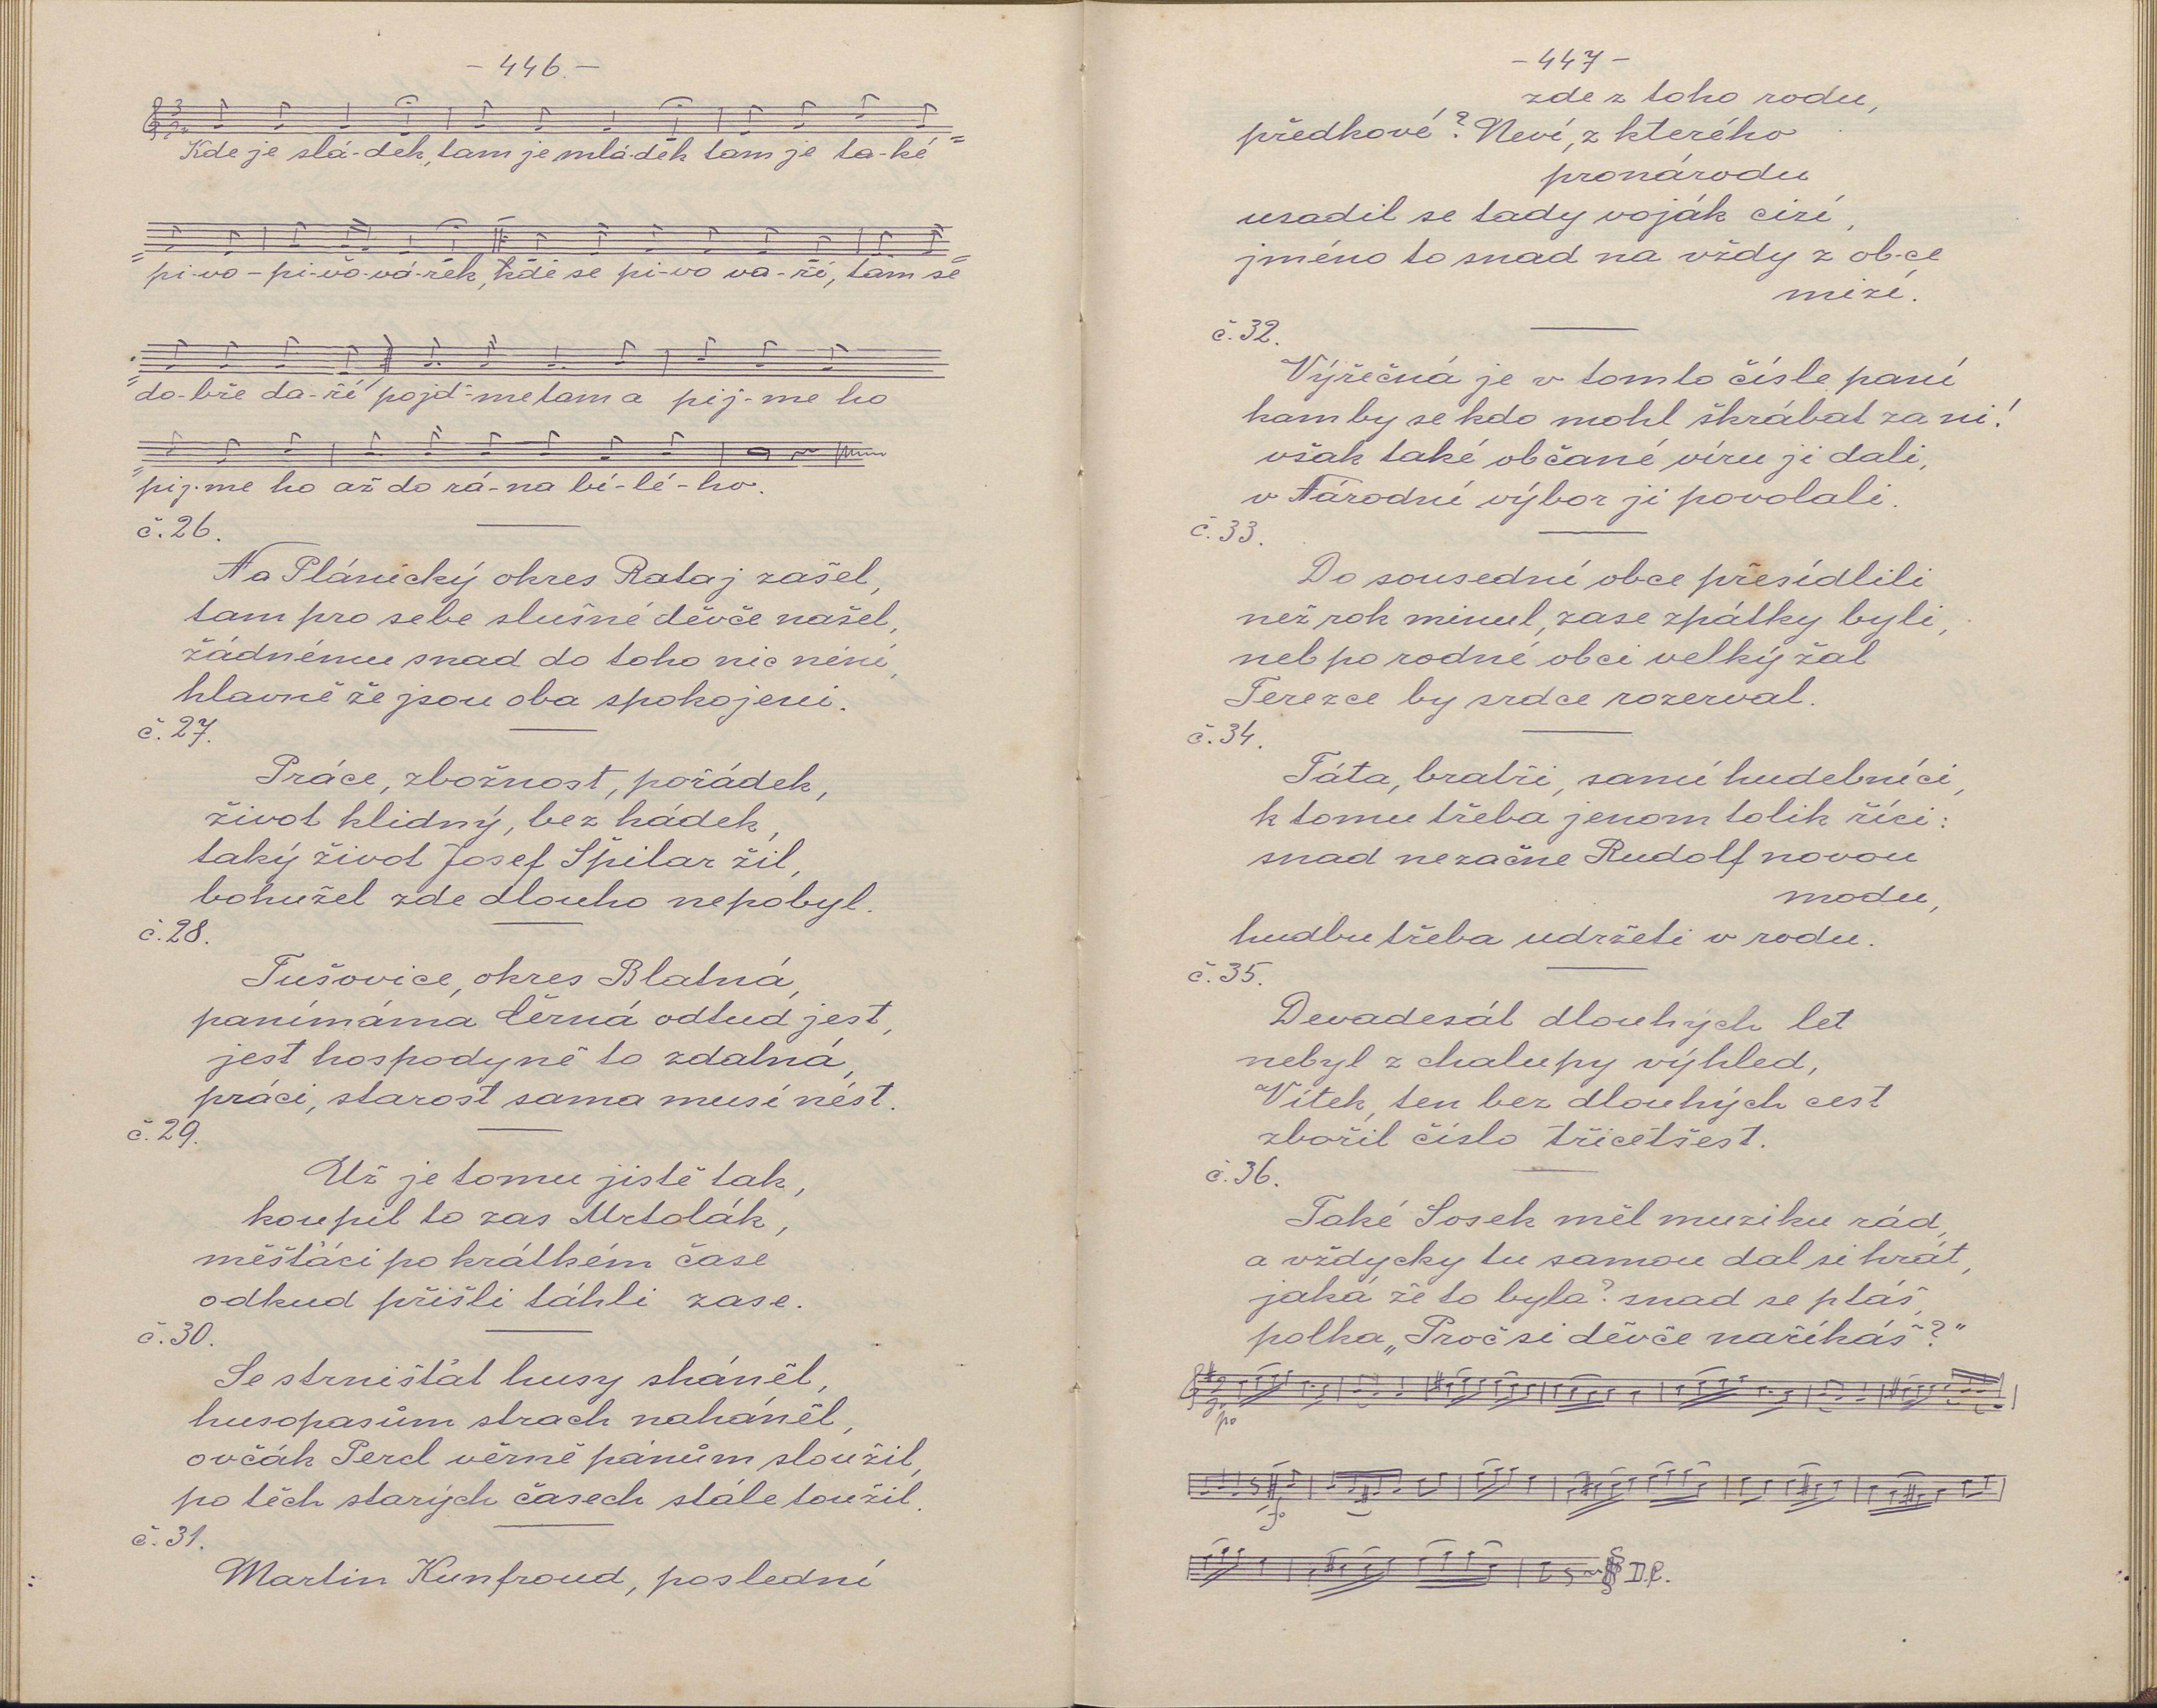 - 446. -
Kde je slá-dek, tam je mlá-dek tam je ta-ké
pi-vo - pi-vo-vá-rek, kde se pi-vo va-ří, tam se
do-bře da-ří pojď-me tam a pij-me ho
pij-me ho až do rá-na bí-lé-ho.
č. 26.
Na Plánický okres Rataj zašel,
tam pro sebe slušné děvče našel,
žádnému snad do toho nic není,
hlavně že jsou oba spokojeni.
č. 27.
Práce, zbožnost, pořádek,
život klidný, bez hádek,
taký život Josef Špilar žil,
bohužel zde dlouho nepobyl.
č. 28.
Tušovice, okres Blatná,
panímáma Černá odtud jest,
jest hospodyně to zdatná,
práci, starost sama musí nést.
č. 29.
Už je tomu jistě tak,
koupil to zas Mrtolák,
měšťáci po krátkém čase
odkud přišli táhli zase.
č. 30.
Se strnišťat husy sháněl,
husopasům strach naháněl,
ovčák Percl věrně pánům sloužil,
po těch starých časech stále toužil.
č. 31.
Martin Kunfroud, poslední
- 447 -
zde z toho rodu,
předkové? Neví, z kterého
pronárodu
usadil se tady voják cizí,
jméno to snad na vždy z ob-ce
mizí.
č. 32.
Výřečná je v tomto čísle paní
kam by se kdo mohl škrábat za ni!
však také občané víru jí dali,
v Národní výbor ji povolali.
č. 33.
Do sousední obce přesídlili
než rok minul, zase zpátky byli,
neb po rodné obci velký žal
Terezce by srdce rozerval.
č. 34.
Táta, bratři, samí hudebníci,
k tomu třeba jenom tolik říci:
snad nezačne Rudolf novou
modu,
hudbu třeba udržeti v rodu.
č. 35.
Devadesát dlouhých let
nebyl z chalupy výhled,
Vítek, ten bez dlouhých cest
zbořil číslo třicetšest.
č. 36.
Také Sosek měl muziku rád,
a vždycky tu samou dal si hrát,
jaká že to byla? snad se ptáš,
polka „Proč si děvče naříkáš?"
p
f
D.C.